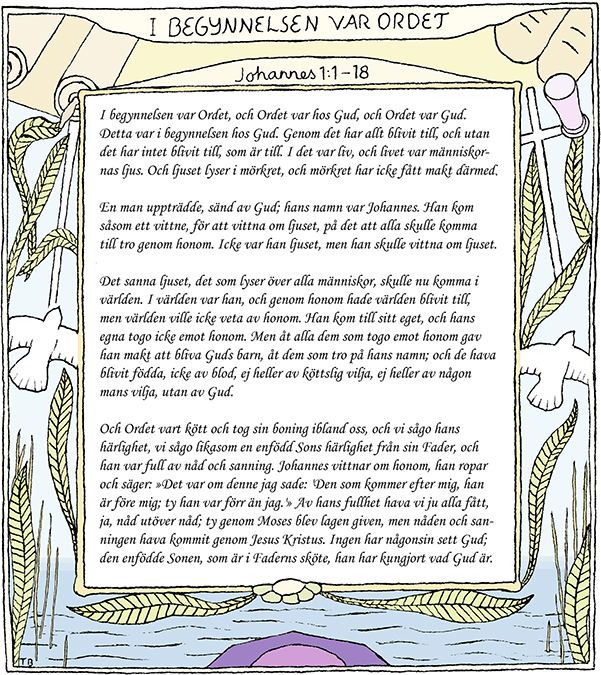 I BEGYNNELSEN VAR ORDET
Johannes 1:1–18
I begynnelsen var Ordet, och Ordet var hos Gud, och Ordet var Gud.
Detta var i begynnelsen hos Gud. Genom det har allt blivit till, och utan
det har intet blivit till, som är till. I det var liv, och livet var människor-
nas ljus. Och ljuset lyser i mörkret, och mörkret har icke fått makt därmed.
En man uppträdde, sänd av Gud; hans namn var Johannes. Han kom
såsom ett vittne, för att vittna om ljuset, på det att alla skulle komma
till tro genom honom. Icke var han ljuset, men han skulle vittna om ljuset.
Det sanna ljuset, det som lyser över alla människor, skulle nu komma i
världen. I världen var han, och genom honom hade världen blivit till,
men världen ville icke veta av honom. Han kom till sitt eget, och hans
egna togo icke emot honom. Men åt alla dem som togo emot honom gav
han makt att bliva Guds barn, åt dem som tro på hans namn; och de hava
blivit födda, icke av blod, ej heller av köttslig vilja, ej heller av någon
mans vilja, utan av Gud.
Och Ordet vart kött och tog sin boning ibland oss, och vi sågo hans
härlighet, vi sågo likasom en enfödd Sons härlighet från sin Fader, och
han var full av nåd och sanning. Johannes vittnar om honom, han ropar
och säger: »Det var om denne jag sade: 'Den som kommer efter mig, han
är före mig; ty han var förr än jag.'» Av hans fullhet hava vi ju alla fått,
ja, nåd utöver nåd; ty genom Moses blev lagen given, men nåden och san-
ningen hava kommit genom Jesus Kristus. Ingen har någonsin sett Gud;
den enfödde Sonen, som är i Faderns sköte, han har kungjort vad Gud är.
TB